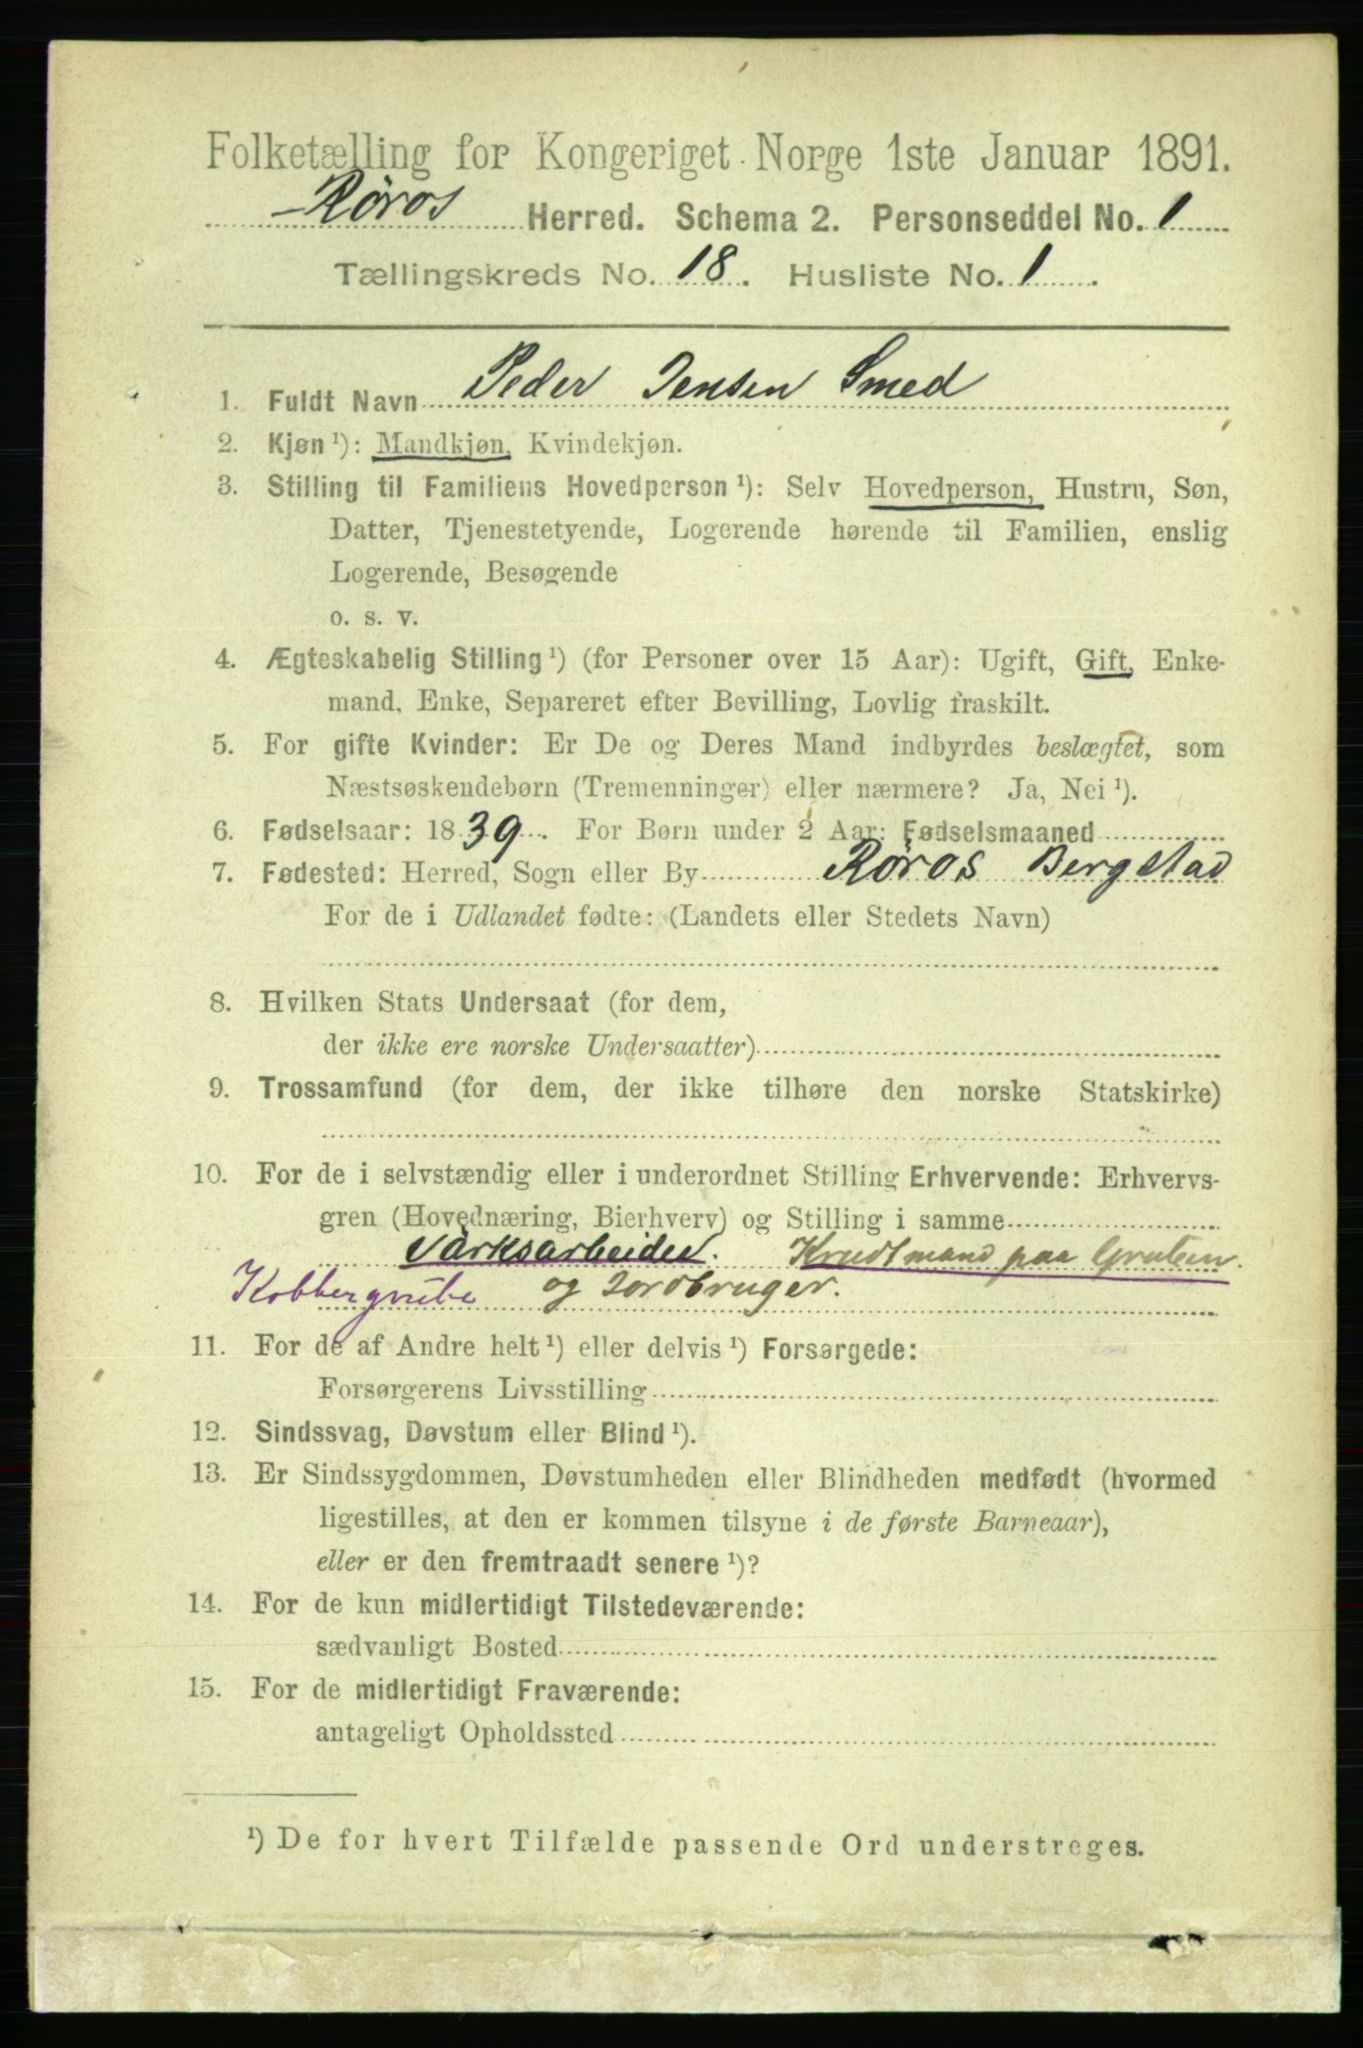 Folketælling for Kongeriget Norge 1ste Januar 1891.
Røros Herred. Schema 2. Personseddel No. 1
Tællingskreds No. 18. Husliste No. 1.
1. Fuldt Navn Peder Jensen Smed
2. Kjøn ¹): Mandkjøn, Kvindekjøn.
3. Stilling til Familiens Hovedperson ¹): Selv Hovedperson, Hustru, Søn,
Datter, Tjenestetyende, Logerende hørende til Familien, enslig
Logerende, Besøgende
o. s. v.
4. Ægteskabelig Stilling ¹) (for Personer over 15 Aar): Ugift, Gift, Enke-
mand, Enke, Separeret efter Bevilling, Lovlig fraskilt.
5. For gifte Kvinder: Er De og Deres Mand indbyrdes beslægtet, som
Næstsøskendebørn (Tremenninger) eller nærmere? Ja, Nei ¹).
6. Fødselsaar: 1839. For Børn under 2 Aar: Fødselsmaaned
7. Fødested: Herred, Sogn eller By Røros Bergstad
For de i Udlandet fødte: (Landets eller Stedets Navn)
8. Hvilken Stats Undersaat (for dem,
der ikke ere norske Undersaatter)
9. Trossamfund (for dem, der ikke tilhøre den norske Statskirke)
10. For de i selvstændig eller i underordnet Stilling Erhvervende: Erhvervs-
gren (Hovednæring, Bierhverv) og Stilling i samme
Værksarbeider. Krudtmand paa Gruben.
Kobbergrube og Jordbruger.
11. For de af Andre helt ¹) eller delvis ¹) Forsørgede:
Forsørgerens Livsstilling
12. Sindssvag, Døvstum eller Blind ¹).
13. Er Sindssygdommen, Døvstumheden eller Blindheden medfødt (hvormed
ligestilles, at den er kommen tilsyne i de første Barneaar),
eller er den fremtraadt senere ¹)?
14. For de kun midlertidigt Tilstedeværende:
sædvanligt Bosted
15. For de midlertidigt Fraværende:
antageligt Opholdssted
¹) De for hvert Tilfælde passende Ord understreges.